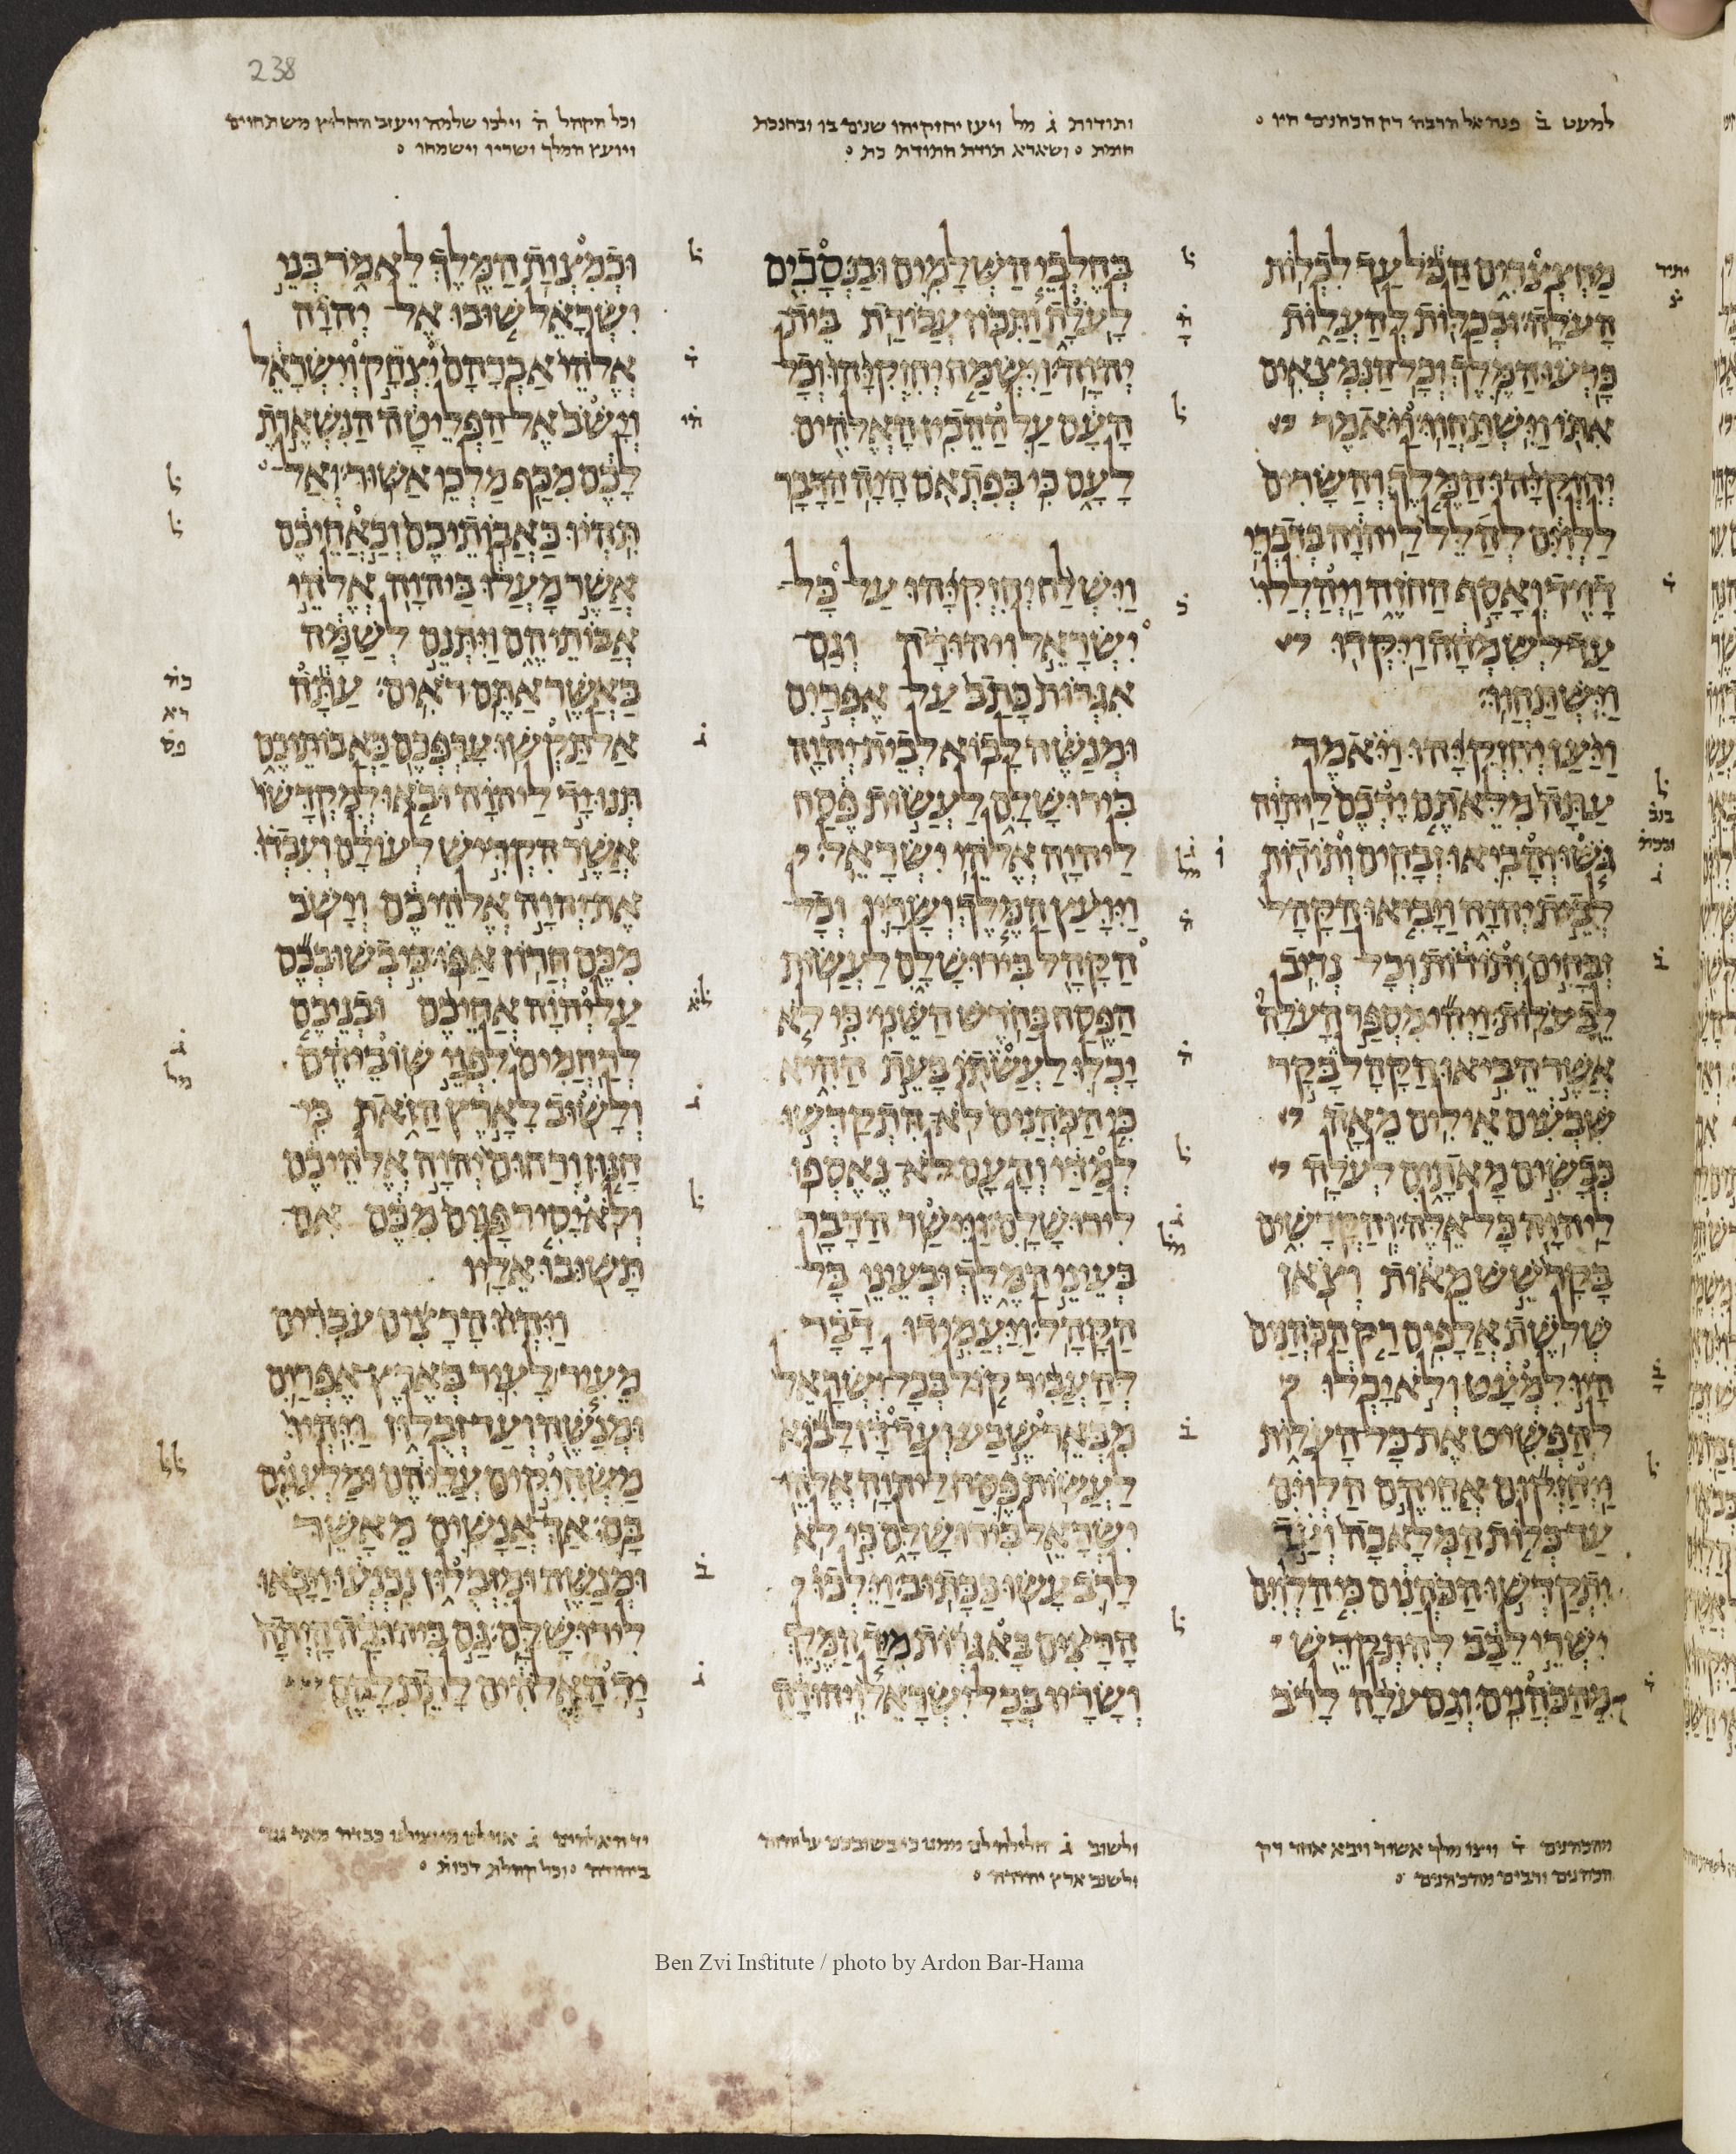 238
למעט ב פנה אל הרבה רק הכהנים היו
ותודות ג מל ויעז יחזקיהו שנים בו ובחנכת
חומת ושארא תודת התודת כת
וכל הקהל ה וילכו שלמה ויעזב החלוץ משתחוים
ויועץ המלך ושריו וישמחו
מחצצרים הכל עד לכלות
העלה וככלות להעלות
כרעו המלך וכל הנמצאים
אתו וישתחוו ויאמר
יחזקיהו המלך והשרים
ללוים להלל ליהוה בדברי
דויד ואסף החזה ויהללו
עד לשמחה ויקדו
וישתחוו
ויען יחזקיהו ויאמר
עתה מלאתם ידכם ליהוה
גשו והביאו זבחים ותודות
לבית יהוה ויביאו הקהל
זבחים ותודות וכל נדיב
לב עלות ויהי מספר העלה
אשר הביאו הקהל בקר
שבעים אילים מאה
כבשים מאתים לעלה
ליהוה כל אלה והקדשים
בקר שש מאות וצאן
שלשת אלפים רק הכהנים
היו למעט ולא יכלו
להפשיט את כל העלות
ויחזקום אחיהם הלוים
עד כלות המלאכה ועד
יתקדשו הכהנים כי הלוים
ישרי לבב להתקדש
מהכהנים וגם עלה לרב
בחלבי השלמים ובנסכים
לעלה ותכון עבודת בית
יהוה וישמח יחזקיהו וכל
העם על ההכין האלהים
לעם כי בפתאם היה הדבר
וישלח יחזקיהו על כל
ישראל ויהודה וגם
אגרות כתב על אפרים
ומנשה לבוא לבית יהוה
בירושלם לעשות פסח
ליהוה אלהי ישראל
ויועץ המלך ושריו וכל
הקהל בירושלם לעשות
הפסח בחדש השני כי לא
יכלו לעשתו בעת ההיא
כי הכהנים לא התקדשו
למדי והעם לא נאספו
לירושלם ויישר הדבר
בעיני המלך ובעיני כל
הקהל ויעמידו דבר
להעביר קול בכל ישראל
מבאר שבע ועד דן לבוא
לעשות פסח ליהוה אלהי
ישראל בירושלם כי לא
לרב עשו ככתוב וילכו
הרצים באגרות מיד המלך
ושריו בכל ישראל ויהודה
וכמצות המלך לאמר בני
ישראל שובו אל יהוה
אלהי אברהם יצחק וישראל
וישב אל הפליטה הנשארת
לכם מכף מלכי אשור ואל
תהיו כאבותיכם וכאחיכם
אשר מעלו ביהוה אלהי
אבותיהם ויתנם לשמה
כאשר אתם ראים עתה
אל תקשו ערפכם כאבותיכם
תנו יד ליהוה ובאו למקדשו
אשר הקדיש לעולם ועבדו
את יהוה אלהיכם וישב
מכם חרון אפו כי בשובכם
על יהוה אחיכם ובניכם
לרחמים לפני שוביהם
ולשוב לארץ הזאת כי
חנון ורחום יהוה אלהיכם
ולא יסיר פנים מכם אם
תשובו אליו
ויהיו הרצים עברים
מעיר לעיר בארץ אפרים
ומנשה ועד זבלון ויהיו
משחיקים עליהם ומלעגים
בם אך אנשים מאשר
ומנשה ומזבלון נכנעו ויבאו
לירושלם גם ביהודה היתה
יד האלהים לתת להם
מהכהנים ד ויצו מלך אשור ויבא אוריה רק
הכהנים ורבים מהכהנים
ולשוב ג חלילה לנו ממנו כי בשובכם על יהוה
ולשוב ארץ יהודה
יד האלהים ג אוי לנו מי יצילנו כבדה מאד גם
ביהודה וכל קהלת דכות
Ben Zvi Institute / photo by Ardon Bar-Hama